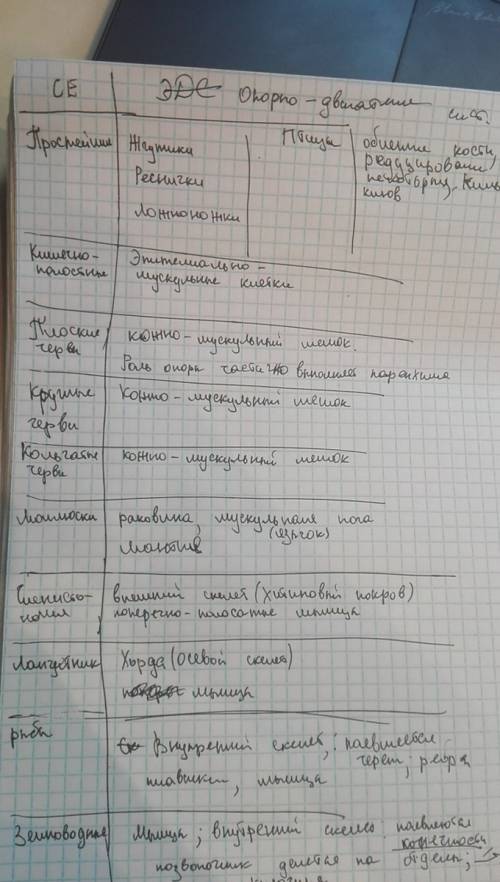 СЕ
Опорно-двигательн сист.
Простейшие
Жгутики
Реснички
Ложноножки
Птицы
обилие кости,
редуцирован
киль
Кишечно-
полостные
Эпителиально-
мускульные клетки
Плоские
черви
кожно-мускульный мешок.
Роль опоры частично выполняет паренхима
Круглые
черви
Кожно-мускульный мешок
Кольчатые
черви
кожно-мускульный мешок
Моллюски
раковина, мускульная нога
(язычок)
Мантия
Членисто-
ногие
внешний скелет (хитиновый покров)
поперечно-полосатые мышцы
Ланцетник
Хорда (осевой скелет)
мышцы
рыбы
Внутренний скелет,
череп; ребра
плавники, мышцы
Земноводные
Мышцы; внутренний скелет появляются
конечности
позвоночник делится на отделы;